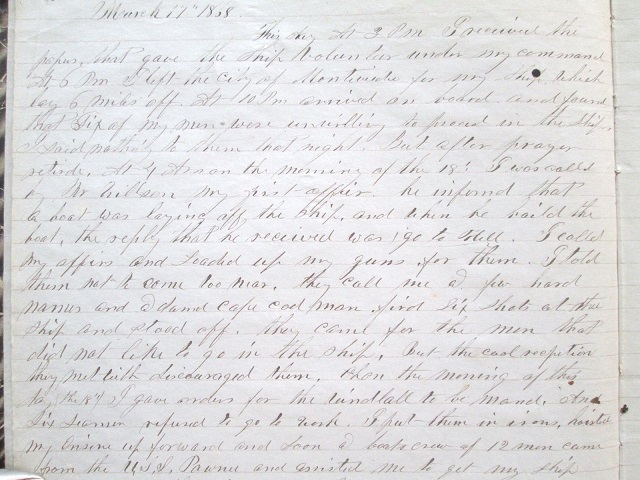 March 17th 1868.
This day At 3 Pm I received the
papers, that gave the Ship Volunteer under my command
At 6 Pm I left the City of Montivideo for my Ship which
lay 6 miles off. At 10 Pm arrived on board and found
that Six of my men were unwilling to proceed in the Ship
I said nothing to them that night. But after prayer
retired. At 4 Am on the morning of the 18th I was called
by Mr Willson my first officer he informd that
a boat was laying off the Ship, and when he haild the
boat, the reply that he received was go to Hell. I called
my officers and Loaded up my guns for them. I told
them not to come too near. they call me a few hard
names and a damd Cape Cod man fired Six Shots at the
Ship and Stood off. they came for the men that
did not like to go in the Ship, but the cool reception
they met with discouraged them. then the morning of the
18th I gave orders for the windlass to be mand. And
Six Seamen refused to go to work. I put them in irons, hoisted
my Ensign up forward and Soon a boats crew of 12 men came
from the U.S.S. Pawnee and assisted me to get my Ship